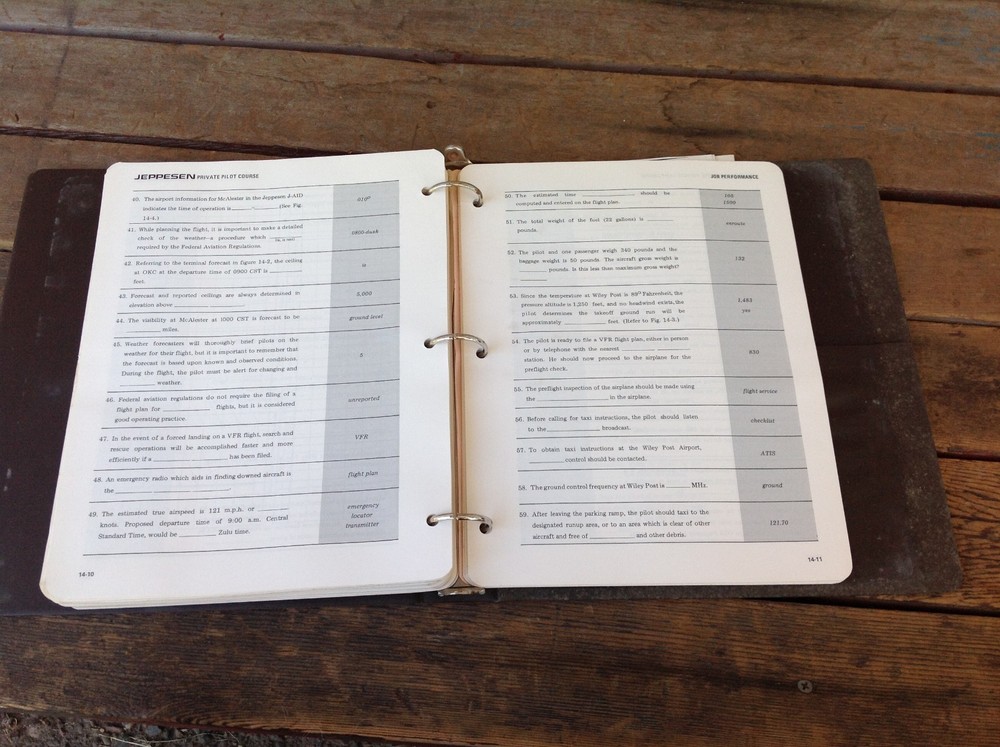 JEPPESEN PRIVATE PILOT COURSE
40. The airport information for McAlester in the Jeppesen J-AID
indicates the time of operation is ____-____. (See Fig.
14-4.)
010°
41. While planning the flight, it is important to make a detailed
check of the weather—a procedure which ________
(is, is not)
required by the Federal Aviation Regulations.
0800-dusk
42. Referring to the terminal forecast in figure 14-2, the ceiling
at OKC at the departure time of 0900 CST is ________
feet.
is
43. Forecast and reported ceilings are always determined in
elevation above ________.
5,000
44. The visibility at McAlester at 1000 CST is forecast to be
________ miles.
ground level
45. Weather forecasters will thoroughly brief pilots on the
weather for their flight, but it is important to remember that
the forecast is based upon known and observed conditions.
During the flight, the pilot must be alert for changing and
________ weather.
5
46. Federal aviation regulations do not require the filing of a
flight plan for ________ flights, but it is considered
good operating practice.
unreported
47. In the event of a forced landing on a VFR flight, search and
rescue operations will be accomplished faster and more
efficiently if a ________ ________ has been filed.
VFR
48. An emergency radio which aids in finding downed aircraft is
the ________ ________ ________.
flight plan
49. The estimated true airspeed is 121 m.p.h. or ________
knots. Proposed departure time of 9:00 a.m. Central
Standard Time, would be ________ Zulu time.
emergency
locator
transmitter
14-10
JOB PERFORMANCE
50. The estimated time ________ should be
computed and entered on the flight plan.
105
1500
51. The total weight of the fuel (22 gallons) is ________
pounds.
enroute
52. The pilot and one passenger weigh 340 pounds and the
baggage weight is 50 pounds. The aircraft gross weight is
________ pounds. Is this less than maximum gross weight?
132
53. Since the temperature at Wiley Post is 89° Fahrenheit, the
pressure altitude is 1,250 feet, and no headwind exists, the
pilot determines the takeoff ground run will be
approximately ________ feet. (Refer to Fig. 14-3.)
yes
54. The pilot is ready to file a VFR flight plan, either in person
or by telephone with the nearest ________ ________
station. He should now proceed to the airplane for the
preflight check.
55. The preflight inspection of the airplane should be made using
the ________ in the airplane.
flight service
56. Before calling for taxi instructions, the pilot should listen
to the ________ broadcast.
checklist
57. To obtain taxi instructions at the Wiley Post Airport,
________ control should be contacted.
ATIS
58. The ground control frequency at Wiley Post is ______ MHz.
ground
59. After leaving the parking ramp, the pilot should taxi to the
designated runup area, or to an area which is clear of other
aircraft and free of ________ and other debris.
121.70
14-11